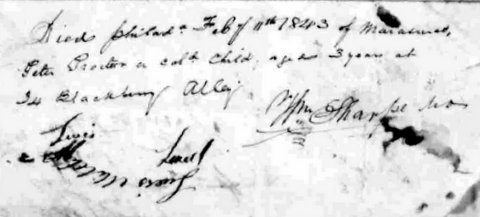 Died Philada. Feby 11th 1843 of Marasmus,
Peter Proctor a cold. Child, aged 3 years at
24 Blackberry Alley
Wm Sharpe MD
Lewis